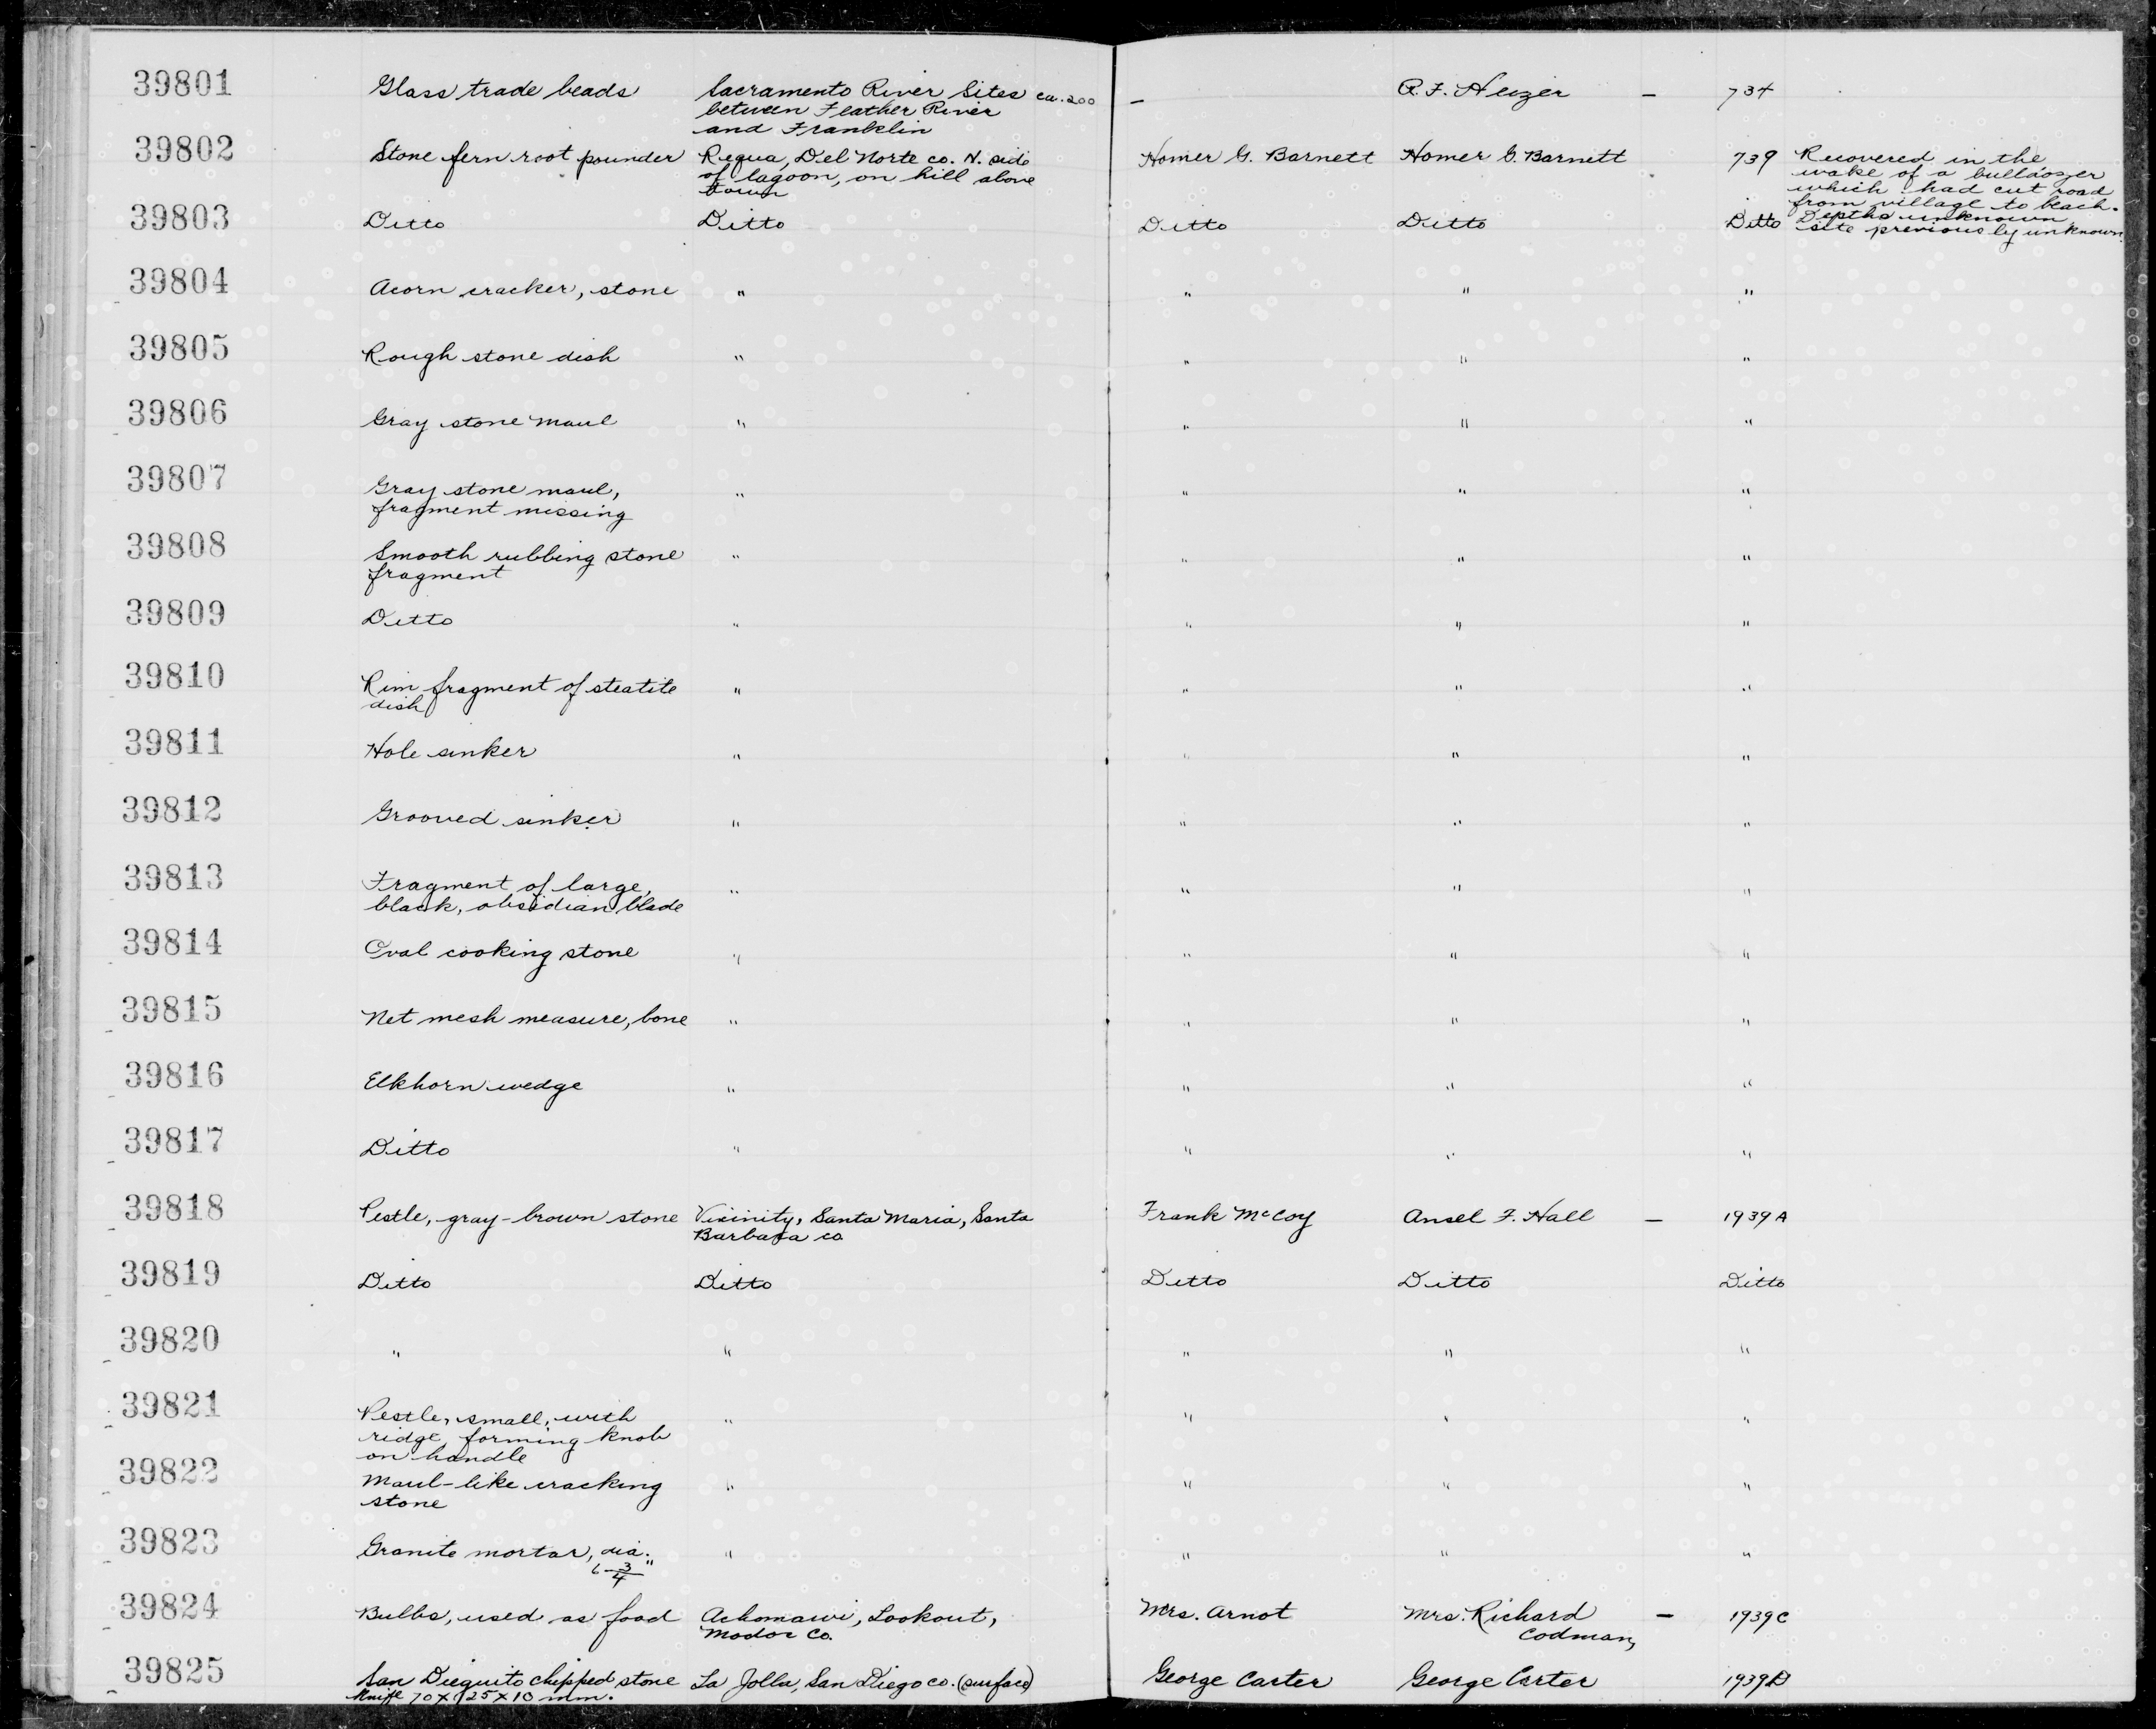 39801 Glass trade beads Sacramento River Sites ca. 200 — R. F. Heizer — 734
between Feather River
and Franklin
39802 Stone fern root pounder Requa, Del Norte co. N. side Homer G. Barnett Homer G. Barnett 739 Recovered in the
of lagoon, on hill above wake of a bulldozer
town which had cut road
from village to beach.
39803 Ditto Ditto Ditto Ditto Ditto Depths unknown
site previously unknown.
39804 Acorn cracker, stone " " " "
39805 Rough stone dish " " " "
39806 Gray stone maul " " " "
39807 Gray stone maul, " " " "
fragment missing
39808 Smooth rubbing stone " " " "
fragment
39809 Ditto " " " "
39810 Rim fragment of steatite " " " "
dish
39811 Hole sinker " " " "
39812 Grooved sinker " " " "
39813 Fragment of large, " " " "
black, obsidian blade
39814 Oval cooking stone " " " "
39815 Net mesh measure, bone " " " "
39816 Elkhorn wedge " " " "
39817 Ditto " " " "
39818 Pestle, gray-brown stone Vicinity, Santa Maria, Santa Frank McCoy Ansel F. Hall — 1939 A
Barbara co.
39819 Ditto Ditto Ditto Ditto Ditto
39820 " " " " "
39821 Pestle, small, with " " " "
ridge, forming knob
on handle
39822 Maul-like cracking " " " "
stone
39823 Granite mortar, dia. " " " "
6-3/4"
39824 Bulbs, used as food Achomawi, Lookout, Mrs. Arnot Mrs. Richard — 1939C
Modoc Co. Codman,
39825 San Dieguito chipped stone La Jolla, San Diego co. (surface) George Carter George Carter 1939D
knife 70 X 125 X 10 mm.